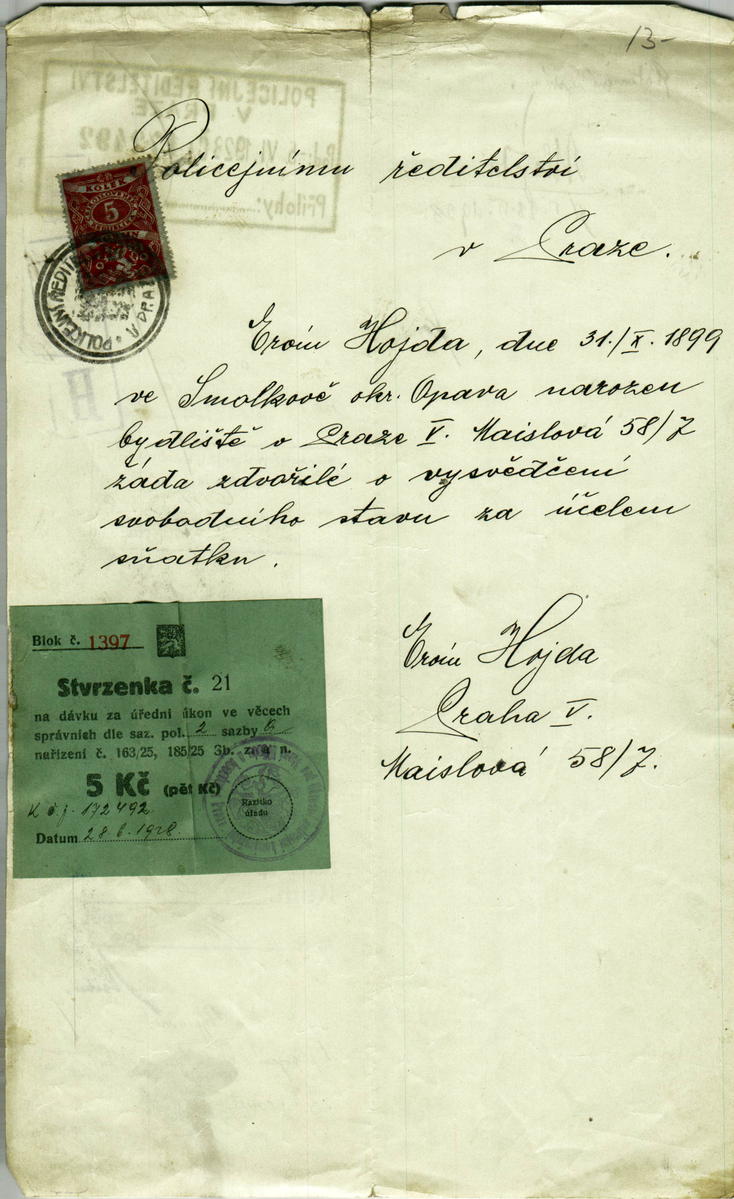 13-
Policejnímu ředitelství
v Praze.
KOLEK
5
POLICEJNÍ ŘEDITEL
V PRAZE
Ervin Hojda, dne 31./X. 1899
ve Smolkově okr. Opava narozen
bydliště v Praze V. Maislová 58/7
žáda zdvořilé o vysvědčení
svobodního stavu za účelem
sňatku.
Ervin Hojda
Praha V.
Maislová 58/7.
Blok č. 1397
Stvrzenka č. 21
na dávku za úřední úkon ve věcech
správních dle saz. pol. 2 sazby B
nařízení č. 163/25, 185/25 Sb. z. a n.
5 Kč (pět Kč)
K č. j. 172492
Razítko
úřadu
Datum 28 6. 1928
POLICEJNÍ ŘEDITELSTVÍ
V PRAZE
Přílohy: